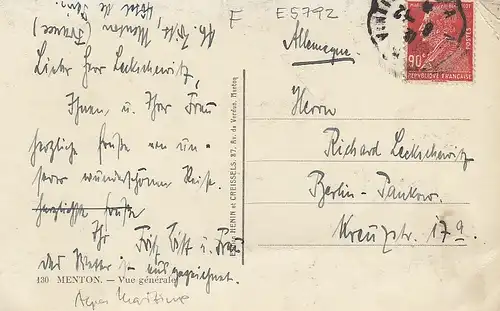 F
E5792
Ab. Menton (France)
Hôtel de
Lieber Herr Leckschewitz,
Ihnen, u. Ihrer Frau
herzliche Grüße von un-
serer wunderschönen Reise.
herzlichste Grüße
Ihr Fritz u. Frau
das Wetter ist ausgezeichnet.
130 MENTON. — Vue générale
Alpes Maritimes
HENIN et CREISSELS, 37, Av. de Verdun, Menton
Allemagne
90c
POSTES
REPUBLIQUE FRANÇAISE
Herrn
Richard Leckschewitz
Berlin - Pankow.
Kreuzstr. 17a.